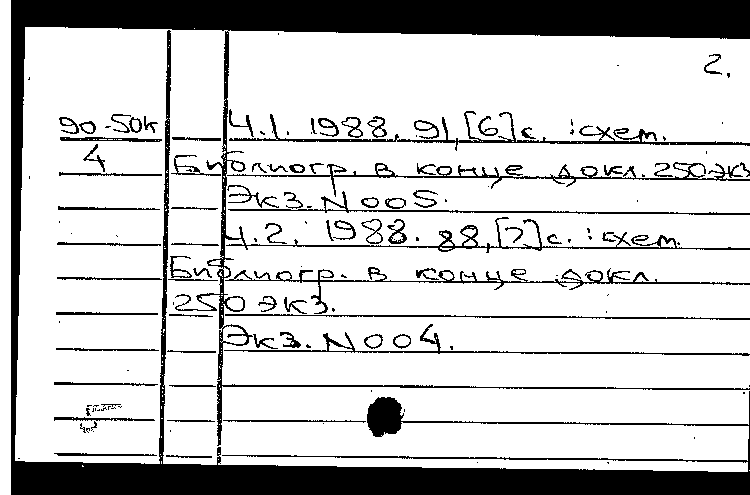 2.
90-50к Ч.1. 1988. 91,[6]с. :схем.
4 Библиогр. в конце докл. 250экз
Экз. N 005.
Ч.2. 1988. 88,[7]с. :схем.
Библиогр. в конце докл.
250 экз.
Экз. N 004.